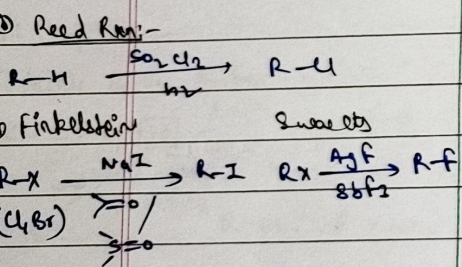 Reed Rxn:-
R-H SO2Cl2 hv R-Cl
Finkelstein Swarts
R-X NaI R-I RX AgF SbF3 R-F
(Cl, Br) =O
S=O